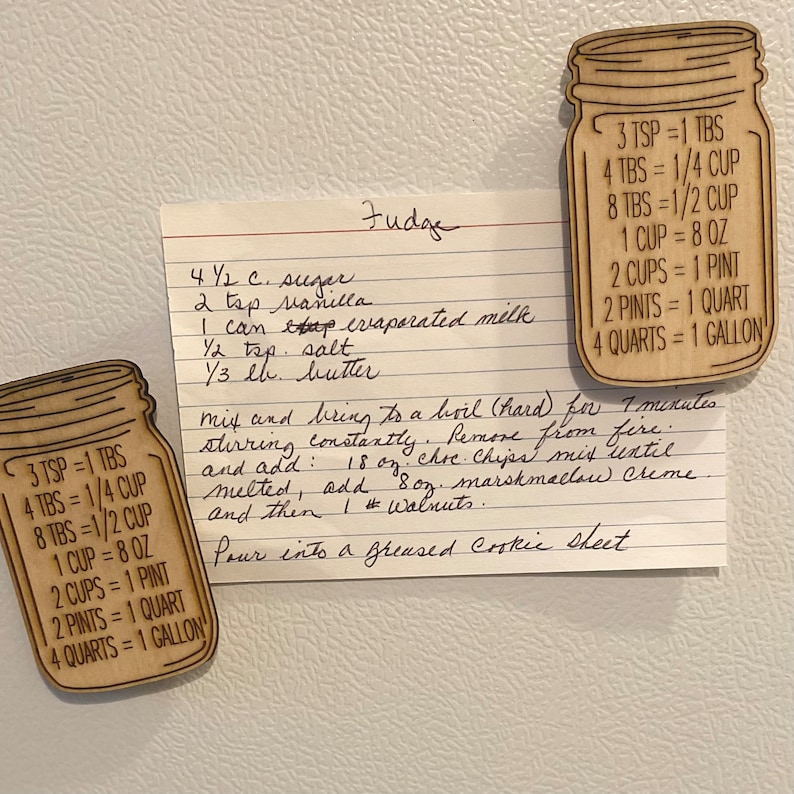 Fudge
4 1/2 c. sugar
2 tsp vanilla
1 can evaporated milk
1/2 tsp. salt
1/3 lb. butter
mix and bring to a boil (hard) for 7 minutes
stirring constantly. Remove from fire.
and add: 18 oz. choc. chips mix until
melted, add 8 oz. marshmallow creme.
and then 1 # walnuts.
Pour into a greased cookie sheet
3 TSP = 1 TBS
4 TBS = 1/4 CUP
8 TBS = 1/2 CUP
1 CUP = 8 OZ
2 CUPS = 1 PINT
2 PINTS = 1 QUART
4 QUARTS = 1 GALLON
3 TSP = 1 TBS
4 TBS = 1/4 CUP
8 TBS = 1/2 CUP
1 CUP = 8 OZ
2 CUPS = 1 PINT
2 PINTS = 1 QUART
4 QUARTS = 1 GALLON